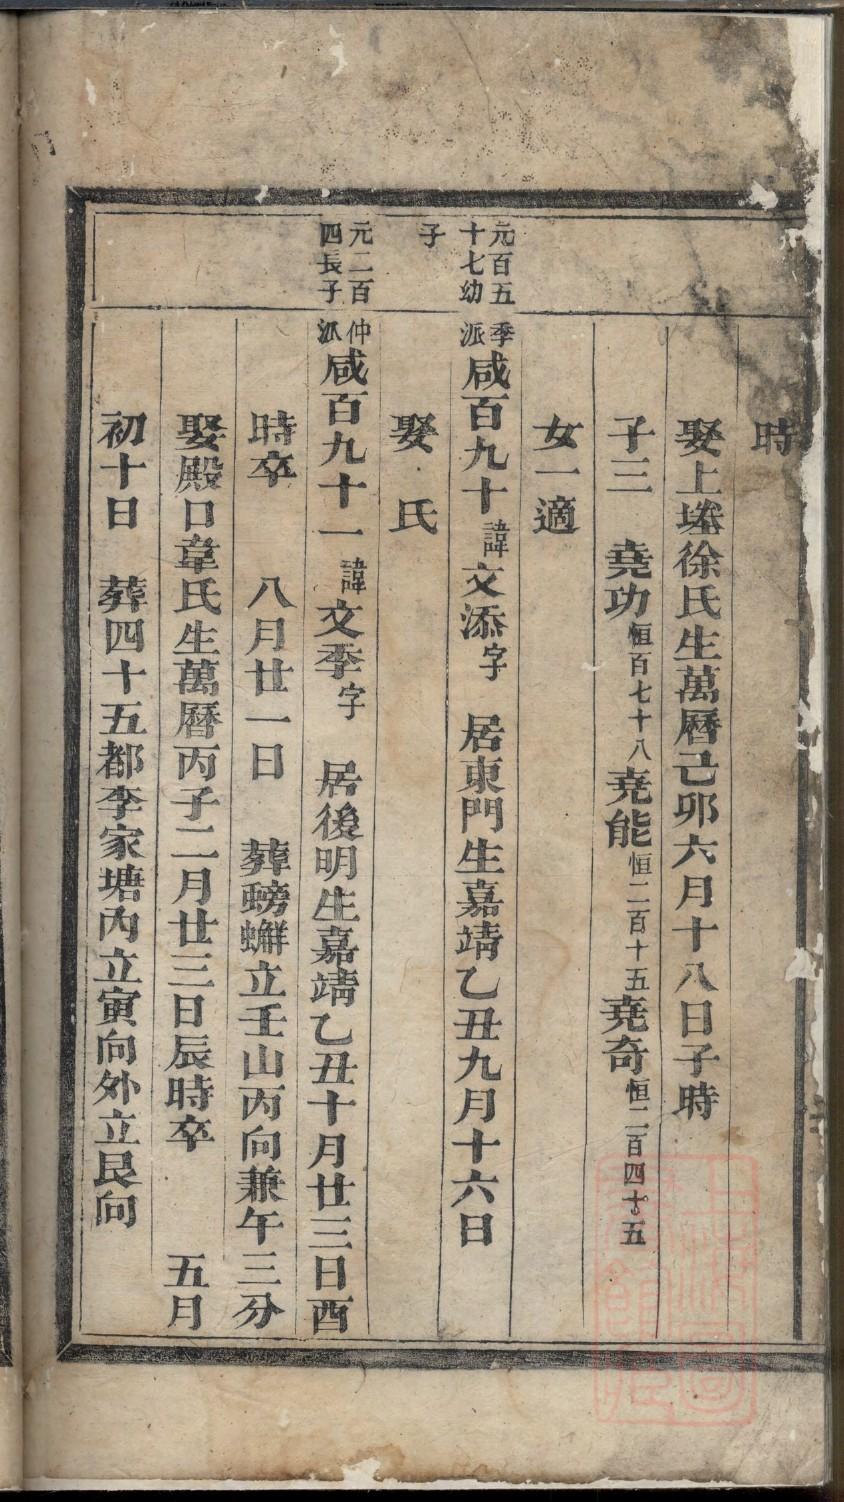 時
娶上塋徐氏生萬曆己卯六月十八日子時
子三 堯功恒百七十八堯能恒二百十五堯奇恒二百四十五
女一適
元百五十七幼子
季派咸百九十諱文添字 居東門生嘉靖乙丑九月十六日
娶 氏
元二百四長子
仲派咸百九十一諱文季字 居後明生嘉靖乙丑十月廿三日酉
時卒 八月廿一日 葬螃蠏立壬山丙向兼午三分
娶殿口韋氏生萬曆丙子二月廿三日辰時卒 五月
初十日 葬四十五都李家塘內立寅向外立艮向